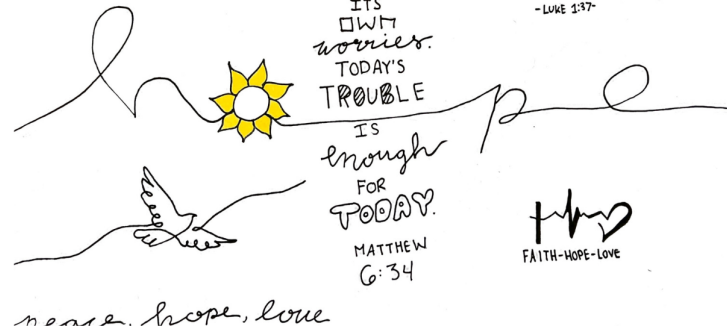 ITS
OWN
worries.
TODAY'S
TROUBLE
IS
enough
FOR
TODAY.
MATTHEW
6:34
-LUKE 1:37-
hope
FAITH-HOPE-LOVE
peace, hope, love